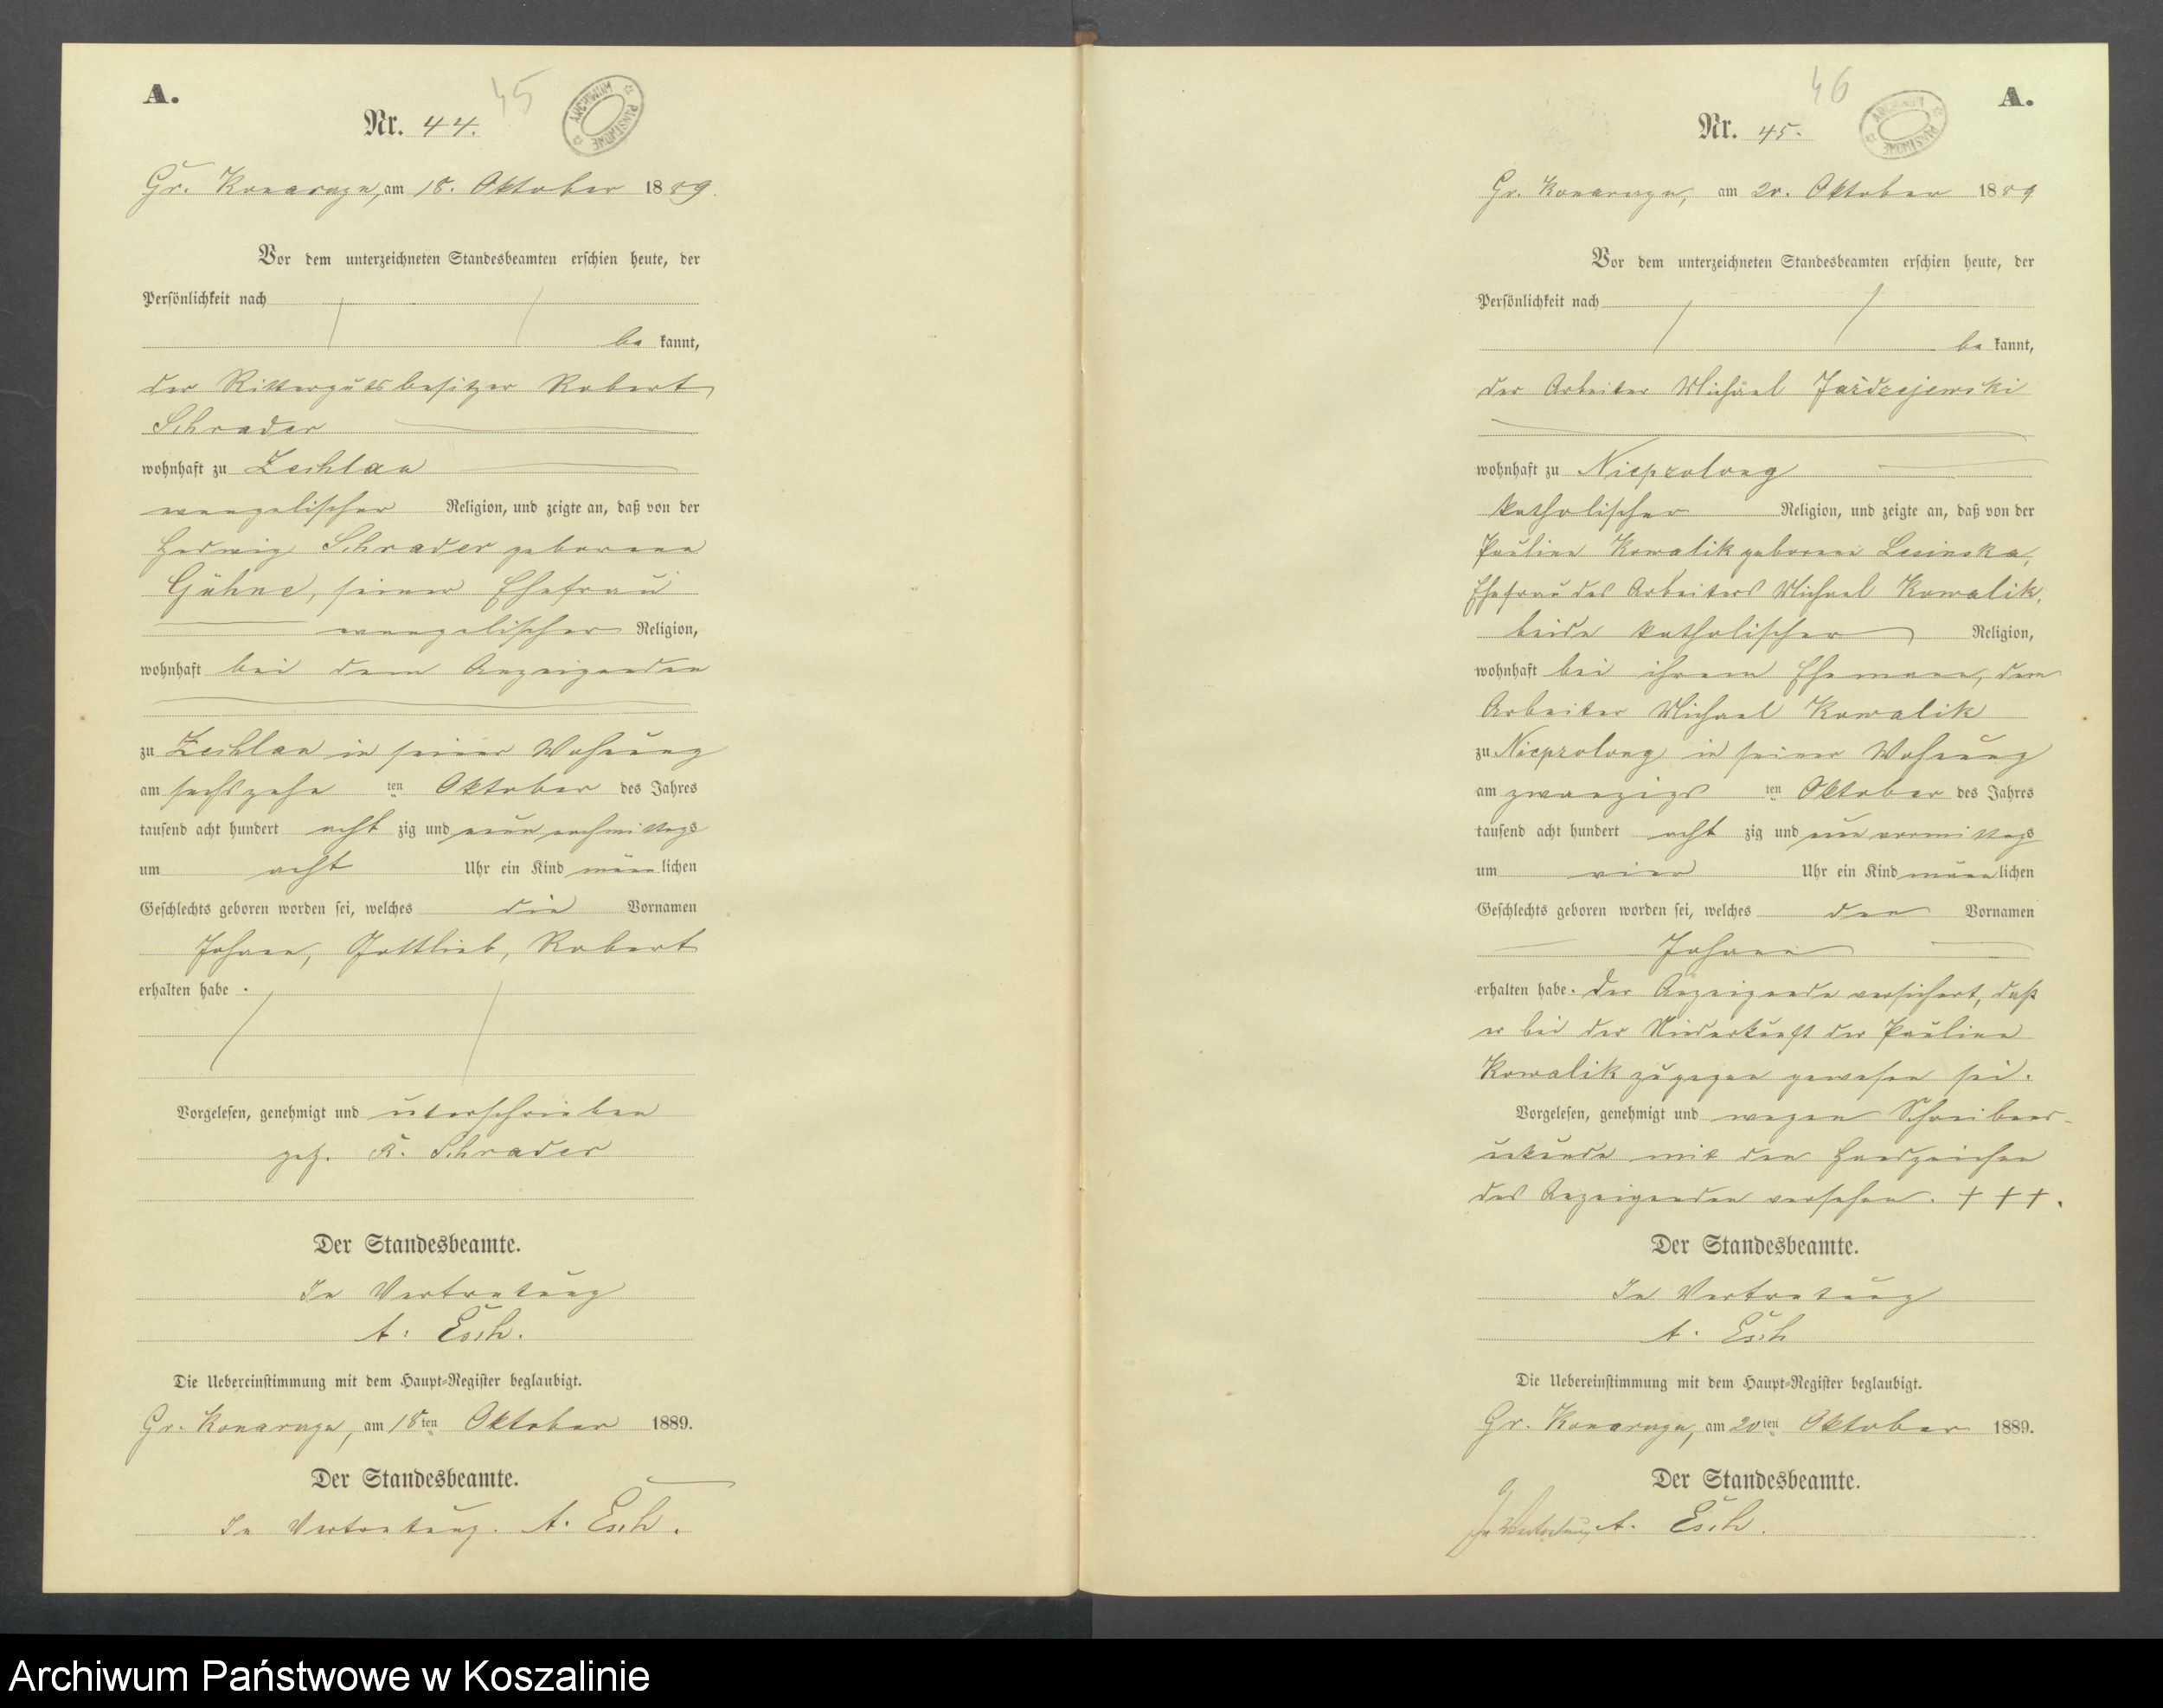 A.
45
Nr. 44.
ARCHIWUM PAŃSTWOWE
Gr. Konarczyn, am 18. Oktober 1889.
Vor dem unterzeichneten Standesbeamten erschien heute, der
Persönlichkeit nach
be kannt,
der Rittergutsbesitzer Robert
Schrader
wohnhaft zu Zechlau
evangelischer Religion, und zeigte an, daß von der
Hedwig Schrader geborene
Gühne, seiner Ehefrau
evangelischer Religion,
wohnhaft bei dem Anzeigenden
zu Zechlau in seiner Wohnung
am sechszehn ten Oktober des Jahres
tausend acht hundert acht zig und neun nachmittags
um acht Uhr ein Kind männlichen
Geschlechts geboren worden sei, welches die Vornamen
Johann, Gottlieb, Robert
erhalten habe.
Vorgelesen, genehmigt und unterschrieben
gez. R. Schrader
Der Standesbeamte.
In Vertretung
A. Esch.
Die Uebereinstimmung mit dem Haupt-Register beglaubigt.
Gr. Konarczyn, am 18ten Oktober 1889.
Der Standesbeamte.
In Vertretung. A. Esch.
46
A.
Nr. 45.
ARCHIWUM PAŃSTWOWE
Gr. Konarczyn, am 20. Oktober 1889
Vor dem unterzeichneten Standesbeamten erschien heute, der
Persönlichkeit nach
be kannt,
der Arbeiter Michael Jażdzejewski
wohnhaft zu Nieprolong
katholischer Religion, und zeigte an, daß von der
Pauline Kowalik geborene Lesinska,
Ehefrau des Arbeiters Michael Kowalik,
beide katholischer Religion,
wohnhaft bei ihrem Ehemann, dem
Arbeiter Michael Kowalik
zu Nieprolong in seiner Wohnung
am zwanzigs ten Oktober des Jahres
tausend acht hundert acht zig und neun vormittags
um vier Uhr ein Kind männlichen
Geschlechts geboren worden sei, welches den Vornamen
Johann
erhalten habe. Der Anzeigende versichert, daß
er bei der Niederkunft der Pauline
Kowalik zugegen gewesen sei.
Vorgelesen, genehmigt und wegen Schreibens-
unkunde mit den Handzeichen
des Anzeigenden versehen. + + +.
Der Standesbeamte.
In Vertretung
A. Esch
Die Uebereinstimmung mit dem Haupt-Register beglaubigt.
Gr. Konarczyn, am 20ten Oktober 1889.
Der Standesbeamte.
In Vertretung A. Esch.
Archiwum Państwowe w Koszalinie